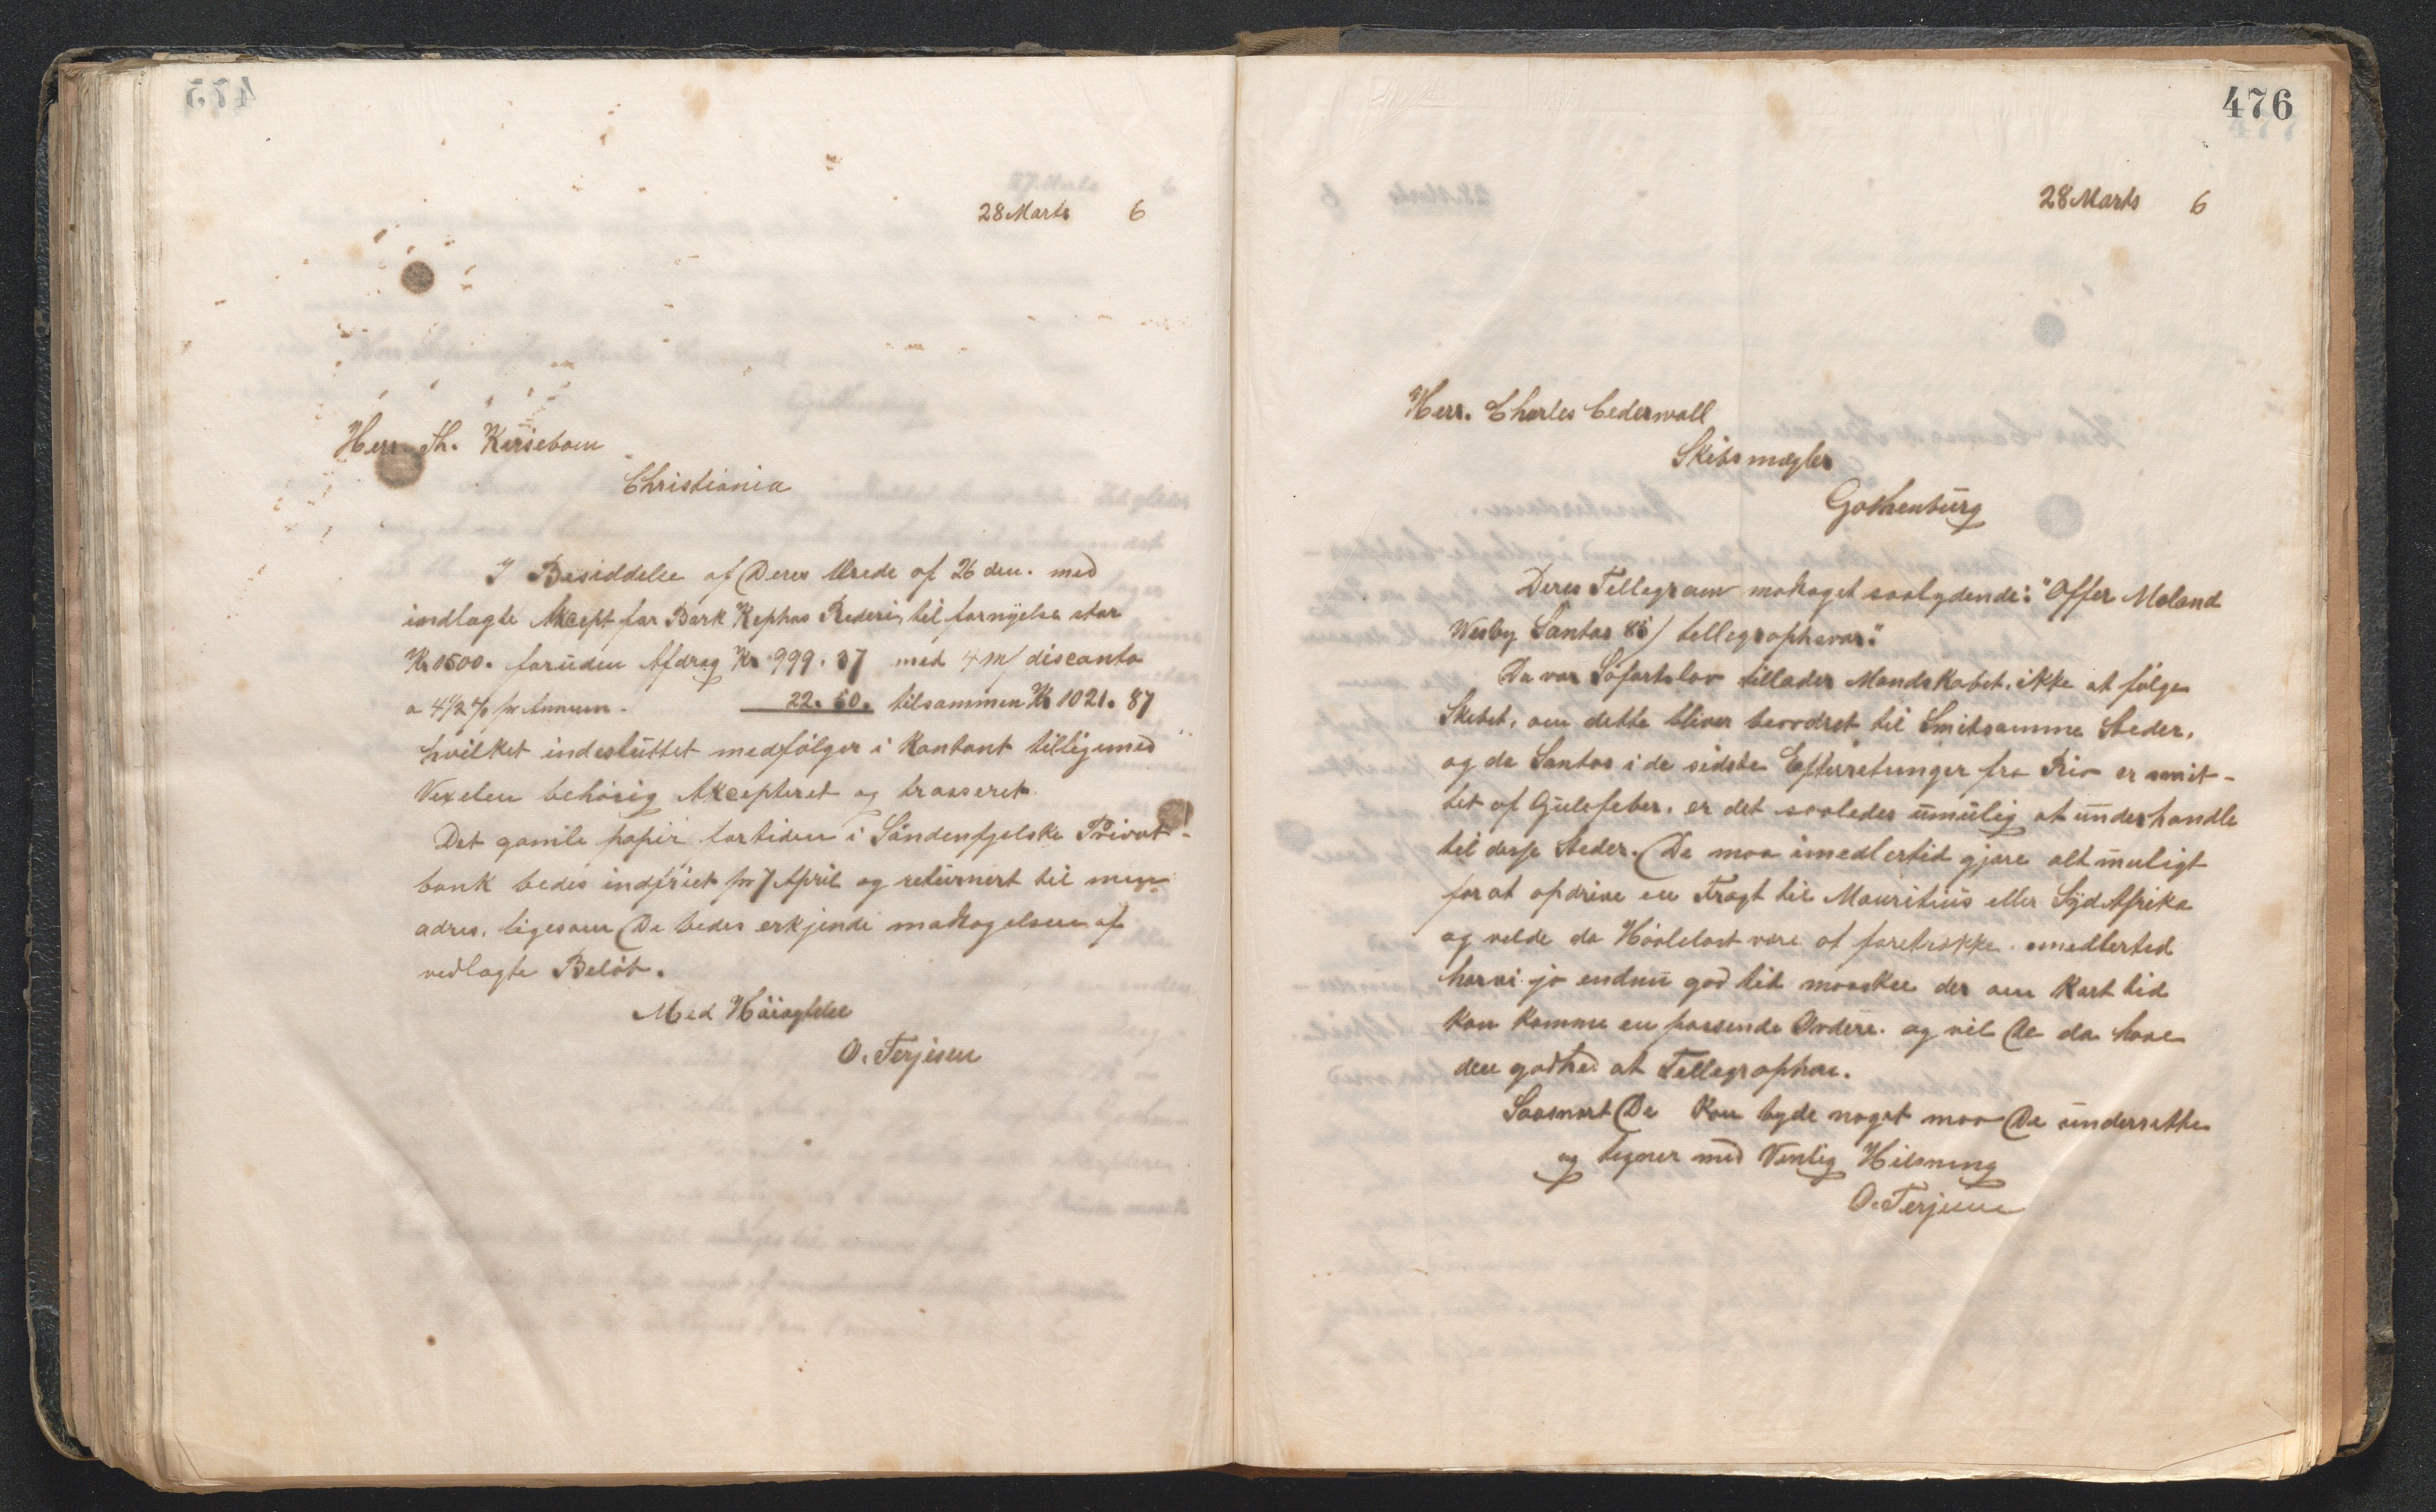 475
28 Marts 6
Herr Th. Kirsebom
Christiania
I Besiddelse af Deres Ærede af 26 den. med
indlagte Akcept for Bark Kephas Rederi, til fornyelse stor
Kr 1500. foruden Afdrag Kr 999.37 med 4 m/ disconto
a 4 1/2 % pr Annum. 22.50. tilsammen Kr 1021.87
hvilket indesluttet medfølger i Kontant tilligemed
Vexelen behörig Akcepteret og trasseret
Det gamle papir fortiden i Söndenfjelske Privat-
bank bedes indfriet pr 7 April og returnert til min
adres. ligesom De bedes erkjende modtagelsen af
vedlagte Belöb.
Med Höiagtelse
O. Terjesen
476
28 Marts 6
Herr. Charles Cederwall
Skibsmægler
Gothenburg
Deres Tellegram motaget saalydende: "Offer Moland
Wesby Santos 85/ tellegrophsvar."
Da vor Söfartslov tillader Mandskabet. ikke at følge
Skibet. om dette bliver beordret til Smitsomme Steder.
og da Santos i de sidste Efterretninger fra Rio er smit-
tet af Gulefeber. er det saaledes umulig at underhandle
til disse Steder. De maa imedlertid gjøre alt muligt
for at opdrive en Fragt til Mauritius eller Syd Afrika
og vilde da Hövlelast være at foretrække. imedlertid
har vi jo endnu god tid maaskee der om Kort tid
Kan Komme en passende Ordere. og vil De da have
den godhed at Tellegraphere.
Saasnart De Kan byde noget maa De underrette
og tegner med Venlig Hilsning
O. Terjesen